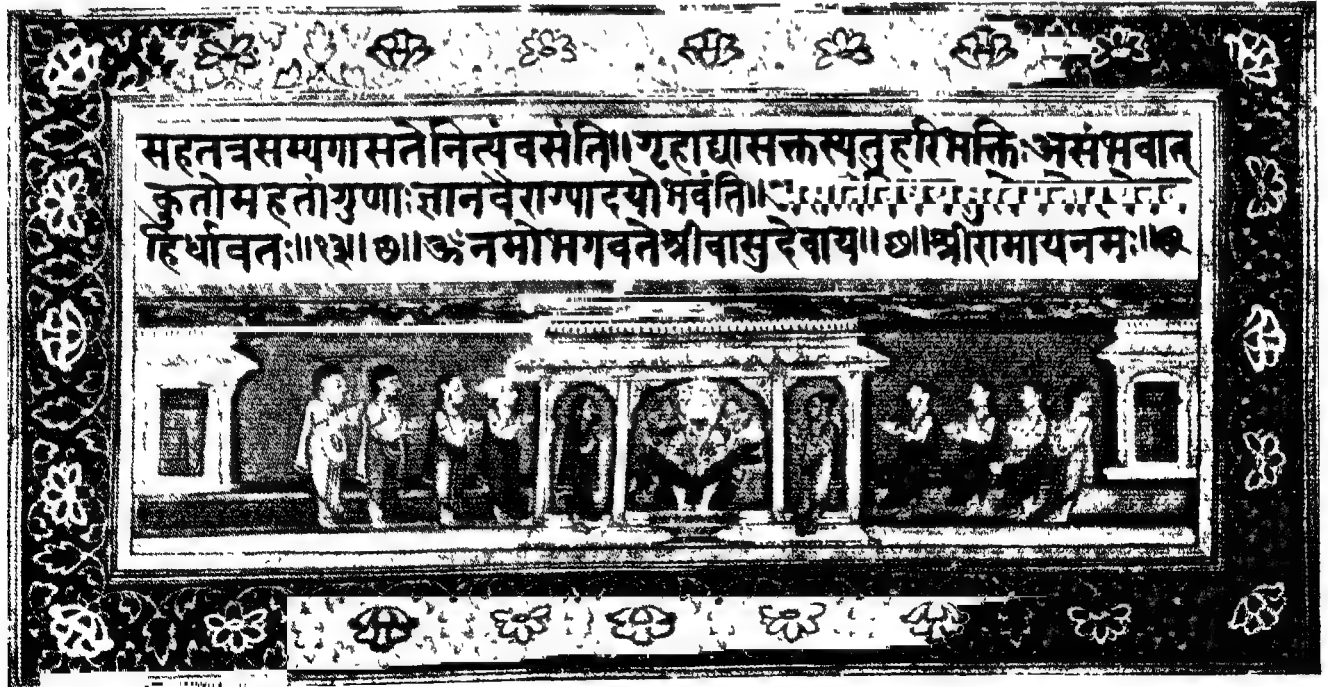 सहतत्रसम्यगासतेनित्यंवसंति॥गृहाद्यासक्तस्यतुहरिभक्तिःअसंभवात्
कुतोमहतांगुणाःज्ञानवैराग्यादयोभवंति॥
हिर्धावतः॥१३॥छ॥ॐनमोभगवतेश्रीवासुदेवाय॥छ॥श्रीरामायनमः॥